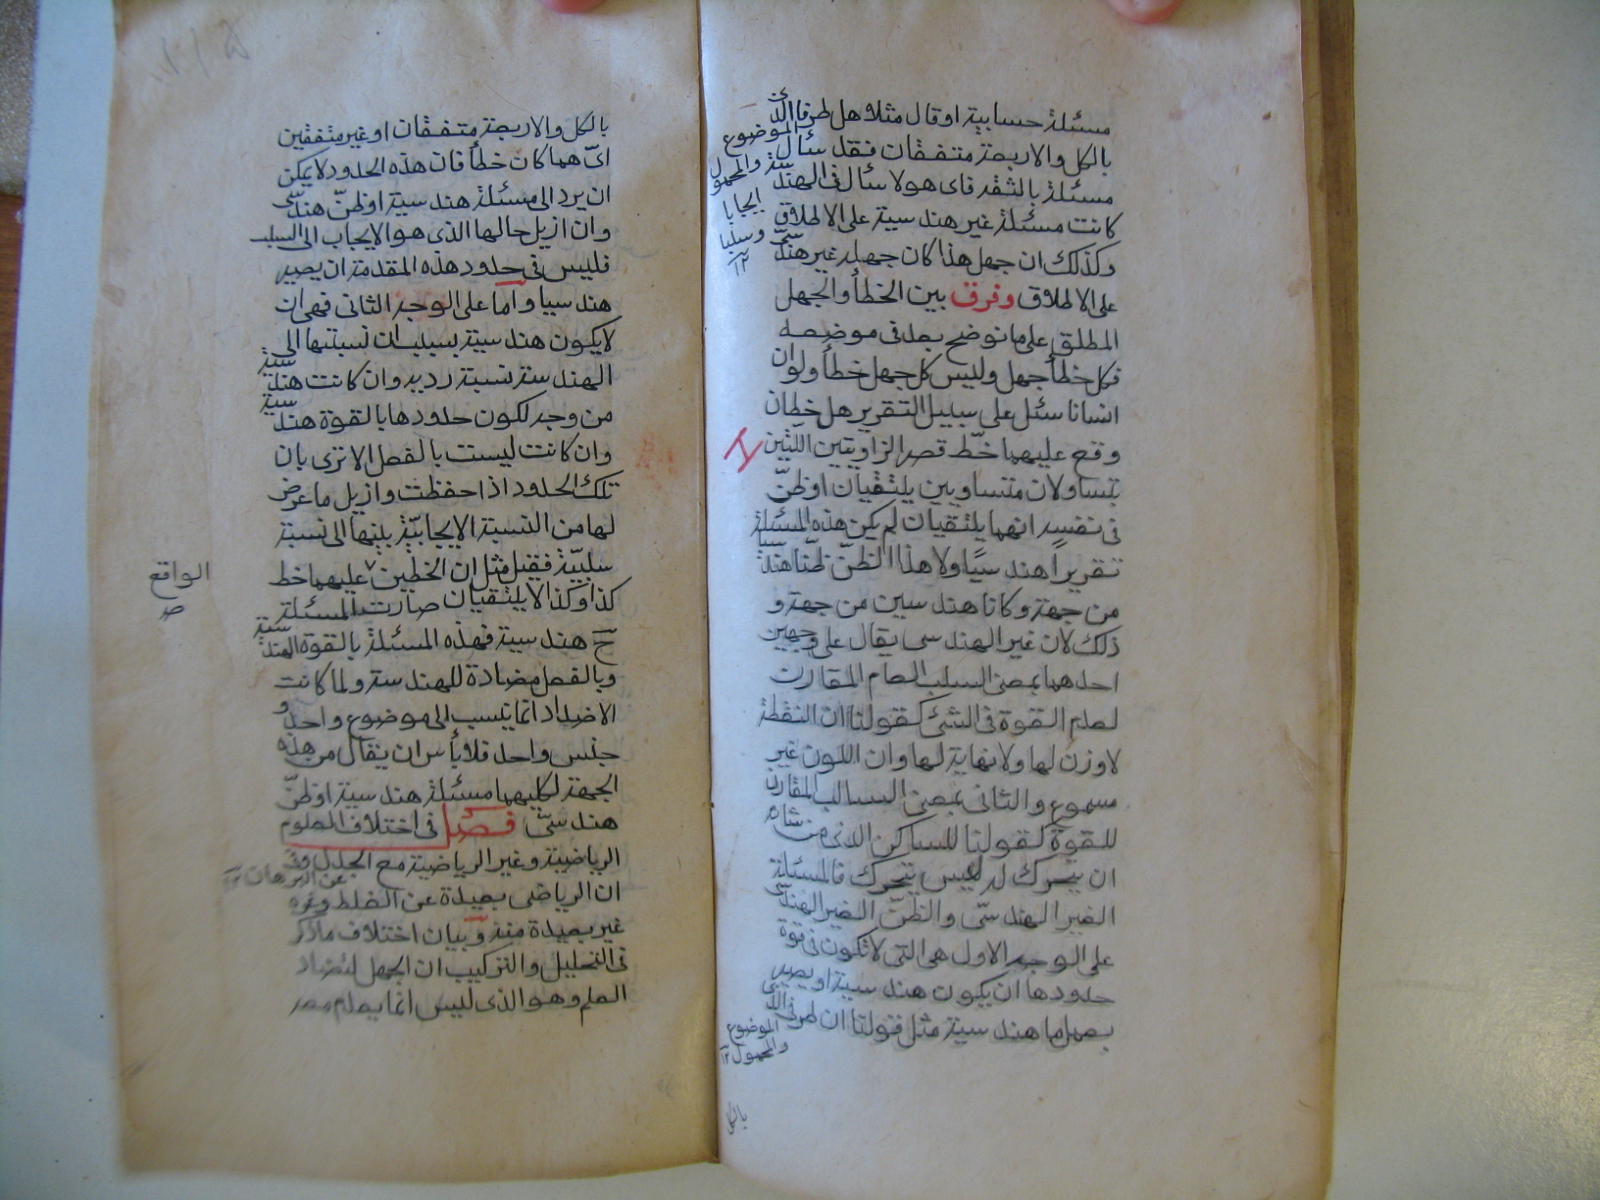 مسئلة حسابية او قال مثلا هل طرفا الذى
بالكل والاربعة متفقان فقد سأل
مسئلة بالثقر فاى هولا سأل فى الهندسة
كانت مسئلة غير هندسية على الاطلاق
وكذلك ان جهل هذا كان جهله غير هندسى
على الاطلاق وفرق بين الخطأ والجهل
المطلق على ما نوضح بعد فى موضعه
فكل خطأ جهل وليس كل جهل خطأ ولوان
انسانا سئل على سبيل التقرير هل خطان
وقع عليهما خط فصير الزاويتين اللتين
يتساولان متساويين يلتقيان او ظنّ
فى نفسه انهما يلتقيان لم يكن هذه المسئلة
تقريرًا هندسيًا ولا هذا الظنّ ظنّا هندسيا
من جهة وكانا هندسين من جهة و
ذلك لان غير الهندسى يقال على وجهين
احدهما بمعنى السلب العام المقارن
لعدم القوة فى الشئ كقولنا ان النقطة
لا وزن لها ولا نهاية لها وان اللون غير
مسموع والثانى بمعنى السالب المقارن
للقوة كقولنا للساكن الذى من شانه
ان يتحرك له ليس يتحرك فالمسئلة
الغير الهندسىّ والظنّ الغير الهندسىّ
على الوجه الاول هى التى لا تكون فى قوة
حدودها ان يكون هندسية او يصير
بعمل ما هندسية مثل قولنا ان طرفى الذى
الموضوع
والمحمول
ايجابا
وسلبا
١٢
الموضوع
والمحمول ١٢
بالكل
بالكل والاربعة متفقان او غير متفقين
اىّ هما كان خطأ فان هذه الحدود لا يمكن
ان يرد الى مسئلة هندسية او ظنّ هندسىّ
وان ازيل حالها الذى هو الايجاب الى السلب
فليس فى حدود هذه المقدمة ان يصير
هندسيا واما على الوجه الثانى فهى ان
لا يكون هندسية بسبب ان نسبتها الى
الهندسة نسبة ردية وان كانت هندسية
من وجه لكون حدودها بالقوة هندسية
وان كانت ليست بالفعل الا ترى بان
تلك الحدود اذا حفظت وازيل ما عرض
لها من النسبة الايجابيّة بينها الى نسبة
سلبيّة فقيل مثل ان الخطين ٧ عليهما خط
كذا وكذا لا يلتقيان صارت المسئلة
ح هندسية فهذه المسئلة بالقوة الهندسية
وبالفعل مضادة للهندسة ولما كانت
الاضداد انما ينسب الى موضوع واحد و
جنس واحد فلا بأس ان يقال من هذه
الجهة لكليهما مسئلة هندسية او ظنّ
هندسىّ فصل فى اختلاف العلوم
الرياضية وغير الرياضية مع الجدل وفى
ان الرياضى بعيدة عن الغلط وغيره
غير بعيدة منه وبيان اختلاف ما ذكر
فى التحليل والتركيب ان الجهل لتضاد
العلم وهو الذى ليس انما يعدم معه
الواقع
ص
عن البرهان ١٢